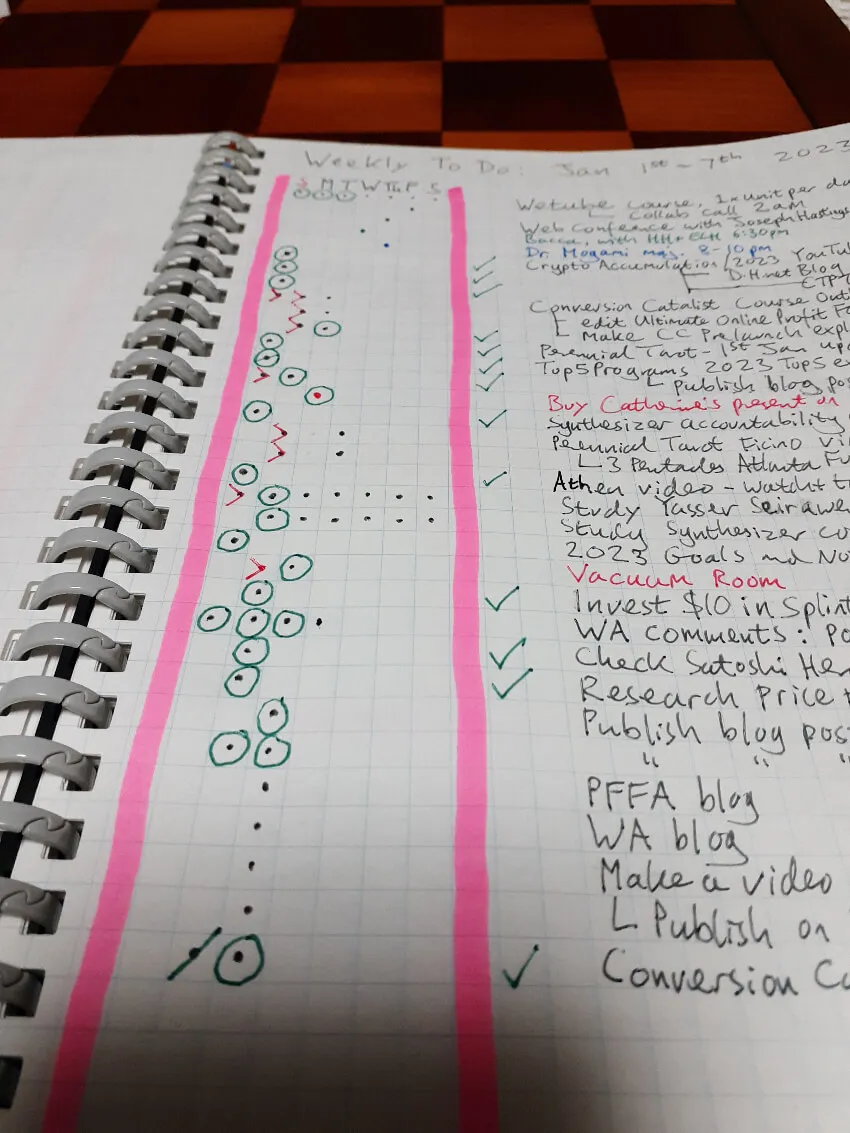 Weekly To Do: Jan 1st - 7th 2023
S M T W Th F S
Wetube Course, 1x unit per da
Collab call 2am
Web Confence with Joseph Hastings
Bacca, with HH + ECH 6:30pm
Dr. Mogami mas. 8-10pm
Crypto Accumulation / 2023 YouTu
D.H.net Blog
CTP
Conversion Catalist Course Out
edit Ultimate Online Profit Fo
Make CC Prelaunch expl
Perennial Tarot - 1st Jan upd
Top5 Programs 2023 Top5 e
publish blog pos
Buy Catherine's present on
Synthesizer accountability
Perennial Tarot Ficino Vi
3 Pentacles Atlanta Fu
Athen video - watch + t
Study Yasser Seirawa
Study Synthesizer co
2023 Goals and No
Vacuum Room
Invest $10 in Splint
WA comments: Po
Check Satoshi He
Research Price
Publish blog pos
" " "
PFFA blog
WA blog
Make a video
Publish on
Conversion Ca